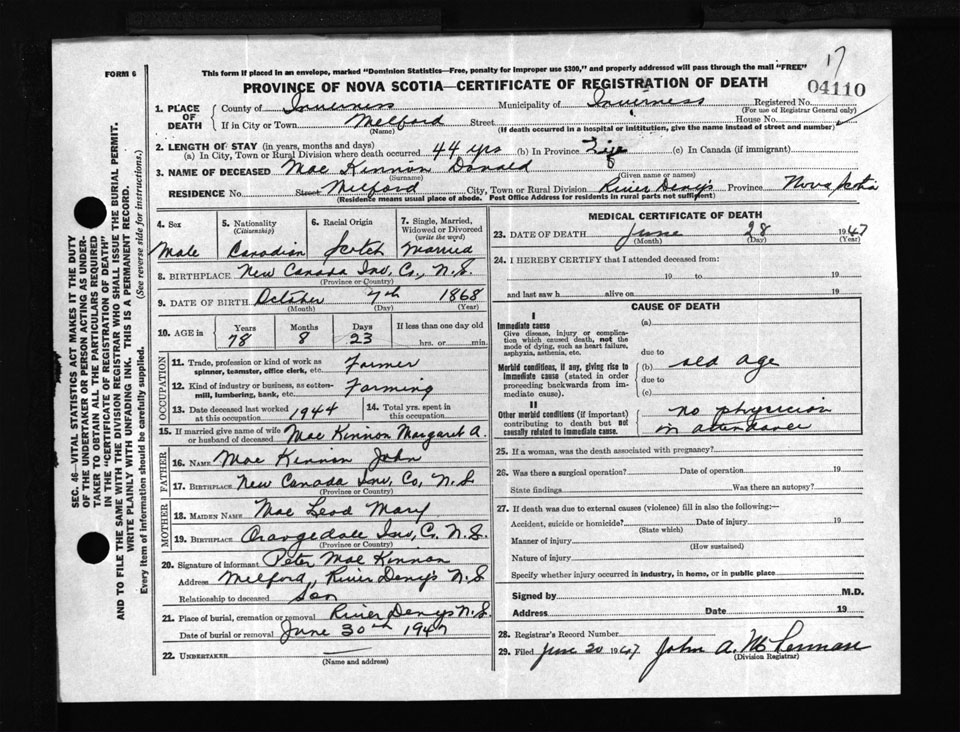 17
FORM 6
This form if placed in an envelope, marked "Dominion Statistics—Free, penalty for improper use $300," and properly addressed will pass through the mail "FREE"
PROVINCE OF NOVA SCOTIA—CERTIFICATE OF REGISTRATION OF DEATH
04110
1. PLACE OF DEATH
County of Inverness Municipality of Inverness Registered No.
(For use of Registrar General only)
If in City or Town Melford Street House No.
(Name) (If death occurred in a hospital or institution, give the name instead of street and number)
2. LENGTH OF STAY (in years, months and days)
(a) In City, Town or Rural Division where death occurred 44 yrs (b) In Province Life (c) In Canada (if immigrant)
3. NAME OF DECEASED Mac Kinnon Donald
(Surname) (Given name or names)
RESIDENCE No. Street Melford City, Town or Rural Division River Denys Province Nova Scotia
(Residence means usual place of abode. Post Office Address for residents in rural parts not sufficient)
4. Sex 5. Nationality (Citizenship) 6. Racial Origin 7. Single, Married, Widowed or Divorced (write the word)
Male Canadian Scotch Married
8. BIRTHPLACE New Canada Inv. Co., N.S.
(Province or Country)
9. DATE OF BIRTH October 7th 1868
(Month) (Day) (Year)
10. AGE in Years Months Days If less than one day old
78 8 23 hrs. or min.
OCCUPATION
11. Trade, profession or kind of work as spinner, teamster, office clerk, etc. Farmer
12. Kind of industry or business, as cotton-mill, lumbering, bank, etc. Farming
13. Date deceased last worked at this occupation 1944 14. Total yrs. spent in this occupation
15. If married give name of wife or husband of deceased Mac Kinnon Margaret A.
FATHER
16. NAME Mac Kinnon John
17. BIRTHPLACE New Canada Inv. Co, N.S.
(Province or Country)
MOTHER
18. MAIDEN NAME Mac Leod Mary
19. BIRTHPLACE Orangedale Inv, C. N.S.
(Province or Country)
20. Signature of informant Peter Mac Kinnon
Address Melford, River Denys N.S
Relationship to deceased Son
21. Place of burial, cremation or removal River Denys N.S.
Date of burial or removal June 30th 1947
22. UNDERTAKER
(Name and address)
MEDICAL CERTIFICATE OF DEATH
23. DATE OF DEATH June 28 1947
(Month) (Day) (Year)
24. I HEREBY CERTIFY that I attended deceased from:
19 to 19
and last saw h alive on 19
CAUSE OF DEATH
I
Immediate cause (a)
Give disease, injury or complication which caused death, not the mode of dying, such as heart failure, asphyxia, asthenia, etc.
due to
Morbid conditions, if any, giving rise to immediate cause (stated in order proceeding backwards from immediate cause).
(b) old age
due to
(c)
II
Other morbid conditions (if important) contributing to death but not causally related to immediate cause.
no physician
in attendance
25. If a woman, was the death associated with pregnancy?
26. Was there a surgical operation? Date of operation 19
State findings Was there an autopsy?
27. If death was due to external causes (violence) fill in also the following:—
Accident, suicide or homicide? Date of injury 19
(State which)
Manner of injury
(How sustained)
Nature of injury
Specify whether injury occurred in industry, in home, or in public place
Signed by M.D.
Address Date 19
28. Registrar's Record Number
29. Filed June 30 1947 John A. McLennan
(Division Registrar)
SEC. 46—VITAL STATISTICS ACT MAKES IT THE DUTY
OF THE UNDERTAKER OR PERSON ACTING AS UNDER-
TAKER TO OBTAIN ALL THE PARTICULARS REQUIRED
IN THE "CERTIFICATE OF REGISTRATION OF DEATH"
AND TO FILE THE SAME WITH THE DIVISION REGISTRAR WHO SHALL ISSUE THE BURIAL PERMIT.
WRITE PLAINLY WITH UNFADING INK. THIS IS A PERMANENT RECORD.
Every item of information should be carefully supplied. (See reverse side for instructions.)